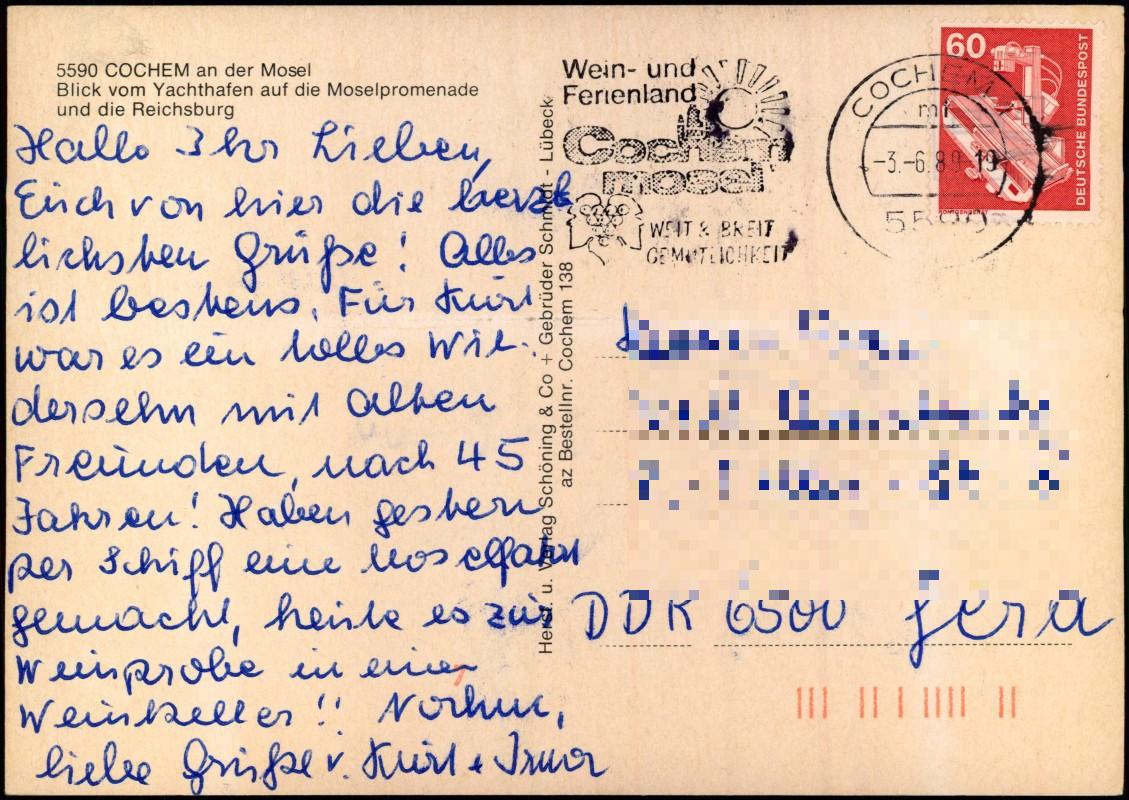 5590 COCHEM an der Mosel
Blick vom Yachthafen auf die Moselpromenade
und die Reichsburg
Hallo Ihr Lieben,
Euch von hier die herz
lichsten Grüße! Alles
ist bestens. Für Kurt
war es ein tolles Wie-
dersehn mit alten
Freunden, nach 45
Jahren! Haben gestern
per Schiff eine Moselfahrt
gemacht, heute es zur
Weinprobe in einen
Weinkeller!!
liebe Grüße v. Kurt + Irma
Herst. u. Verlag Schöning & Co + Gebrüder Schmidt - Lübeck
az Bestellnr. Cochem 138
Wein- und
Ferienland
Cochem
mosel
WEIT & BREIT
GEMÜTLICHKEIT
COCHEM 1
mf
-3.-6.89.-19
5590
60
DEUTSCHE BUNDESPOST
RÖNTGENGERÄT
DDR 6500 Gera